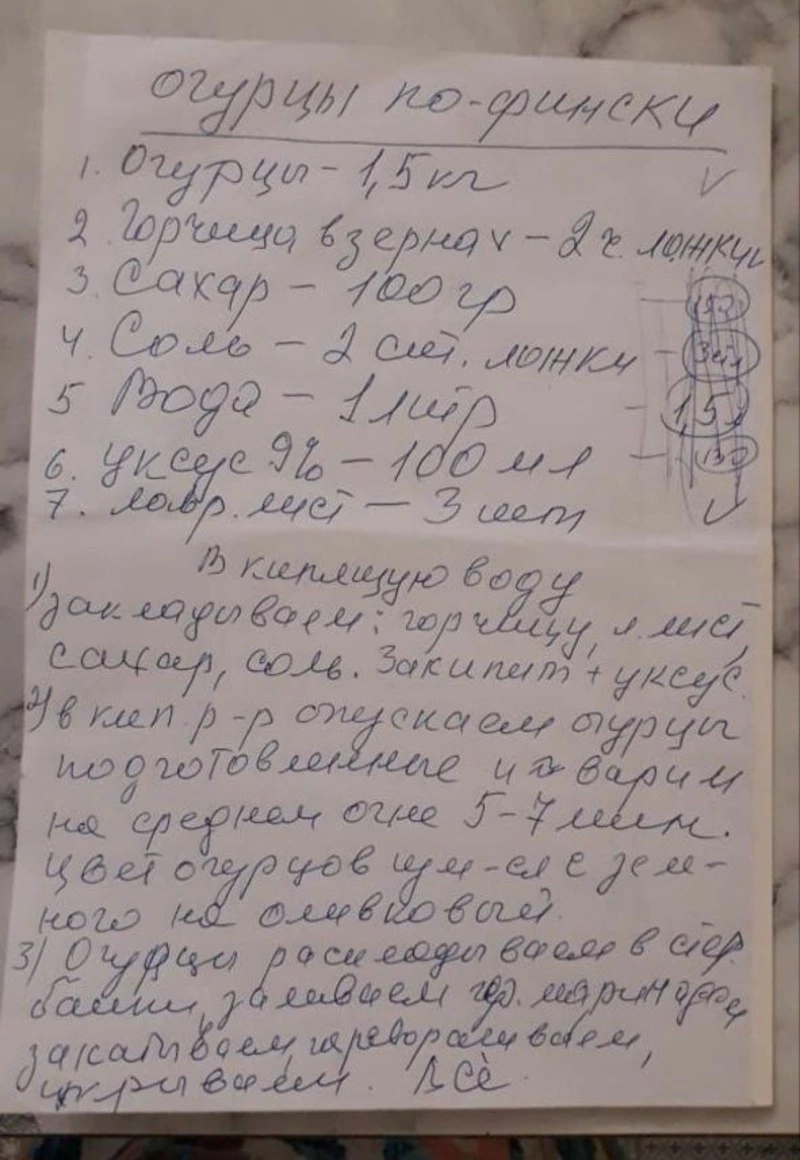 Огурцы по-фински
1. Огурцы - 1,5 кг V
2. Горчица в зернах - 2 ч. ложки
3. Сахар - 100 гр
4. Соль - 2 ст. ложки - 3 ст л
5 Вода - 1 литр - 1,5 л
6. Уксус 9% - 100 мл - 150
7. Лавр. лист - 3 шт V
В кипящую воду
1) закладываем: горчицу, л. лист,
сахар, соль. Закипит + уксус.
2) в кип. р-р опускаем огурцы
подготовленные и варим
на среднем огне 5-7 мин.
Цвет огурцов изм-ся с зелё-
ного на оливковый.
3) Огурцы раскладываем в стер.
банки, заливаем гор. маринадом,
закатываем, переворачиваем,
укрываем. Всё